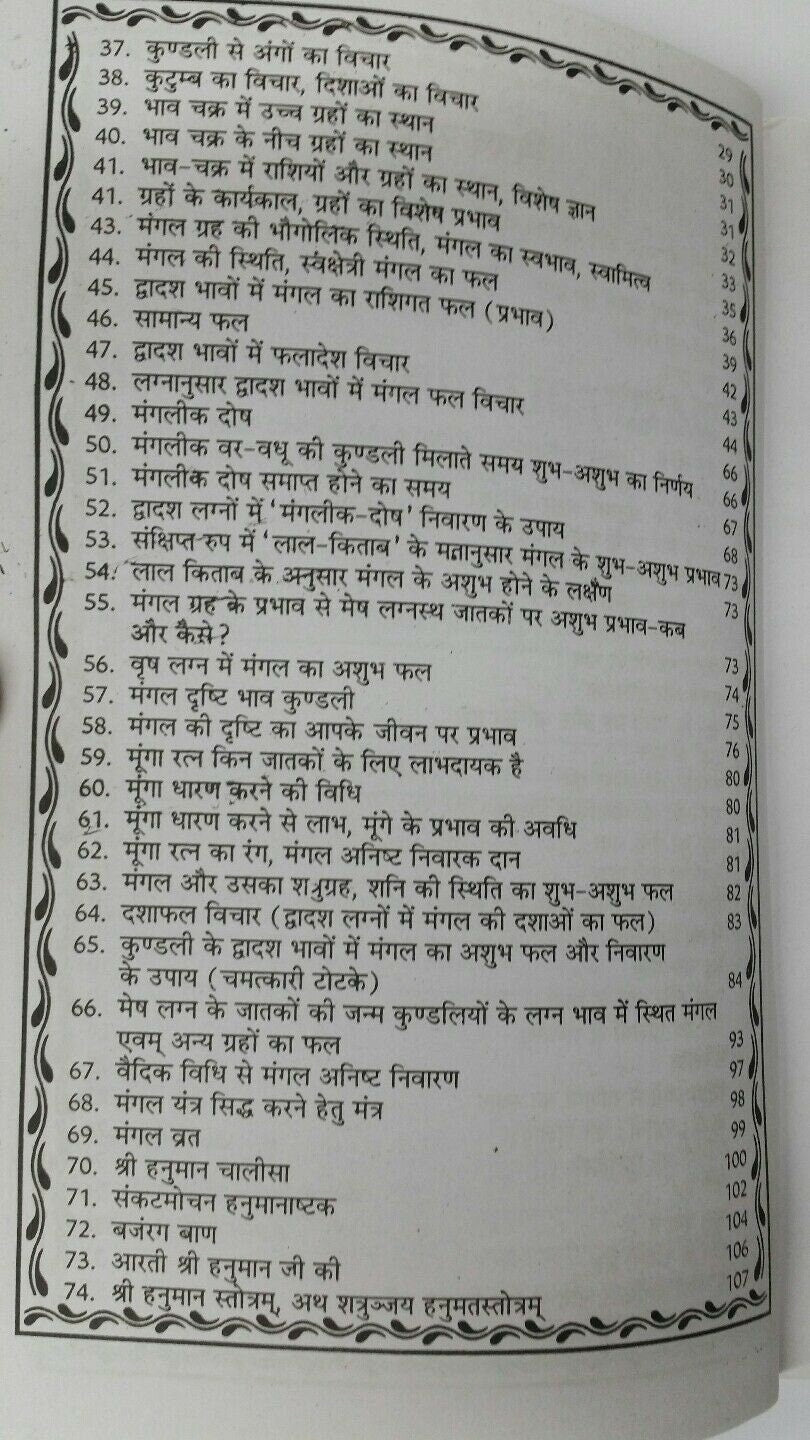 37. कुण्डली से अंगों का विचार 29
38. कुटुम्ब का विचार, दिशाओं का विचार 30
39. भाव चक्र में उच्च ग्रहों का स्थान 31
40. भाव चक्र के नीच ग्रहों का स्थान 31
41. भाव-चक्र में राशियों और ग्रहों का स्थान, विशेष ज्ञान 32
41. ग्रहों के कार्यकाल, ग्रहों का विशेष प्रभाव 33
43. मंगल ग्रह की भौगोलिक स्थिति, मंगल का स्वभाव, स्वामित्व 35
44. मंगल की स्थिति, स्वक्षेत्री मंगल का फल 36
45. द्वादश भावों में मंगल का राशिगत फल (प्रभाव) 39
46. सामान्य फल 42
47. द्वादश भावों में फलादेश विचार 43
48. लग्नानुसार द्वादश भावों में मंगल फल विचार 44
49. मंगलीक दोष 66
50. मंगलीक वर-वधू की कुण्डली मिलाते समय शुभ-अशुभ का निर्णय 66
51. मंगलीक दोष समाप्त होने का समय 67
52. द्वादश लग्नों में ‘मंगलीक-दोष’ निवारण के उपाय 68
53. संक्षिप्त रुप में ‘लाल-किताब’ के मतानुसार मंगल के शुभ-अशुभ प्रभाव 73
54. लाल किताब के अनुसार मंगल के अशुभ होने के लक्षण 73
55. मंगल ग्रह के प्रभाव से मेष लग्नस्थ जातकों पर अशुभ प्रभाव-कब
और कैसे? 73
56. वृष लग्न में मंगल का अशुभ फल 74
57. मंगल दृष्टि भाव कुण्डली 75
58. मंगल की दृष्टि का आपके जीवन पर प्रभाव 76
59. मूंगा रत्न किन जातकों के लिए लाभदायक है 80
60. मूंगा धारण करने की विधि 80
61. मूंगा धारण करने से लाभ, मूंगे के प्रभाव की अवधि 81
62. मूंगा रत्न का रंग, मंगल अनिष्ट निवारक दान 81
63. मंगल और उसका शत्रुग्रह, शनि की स्थिति का शुभ-अशुभ फल 82
64. दशाफल विचार (द्वादश लग्नों में मंगल की दशाओं का फल) 83
65. कुण्डली के द्वादश भावों में मंगल का अशुभ फल और निवारण
के उपाय (चमत्कारी टोटके) 84
66. मेष लग्न के जातकों की जन्म कुण्डलियों के लग्न भाव में स्थित मंगल
एवम् अन्य ग्रहों का फल 93
67. वैदिक विधि से मंगल अनिष्ट निवारण 97
68. मंगल यंत्र सिद्ध करने हेतु मंत्र 98
69. मंगल व्रत 99
70. श्री हनुमान चालीसा 100
71. संकटमोचन हनुमानाष्टक 102
72. बजंरग बाण 104
73. आरती श्री हनुमान जी की 106
74. श्री हनुमान स्तोत्रम्, अथ शत्रुञ्जय हनुमतस्तोत्रम् 107